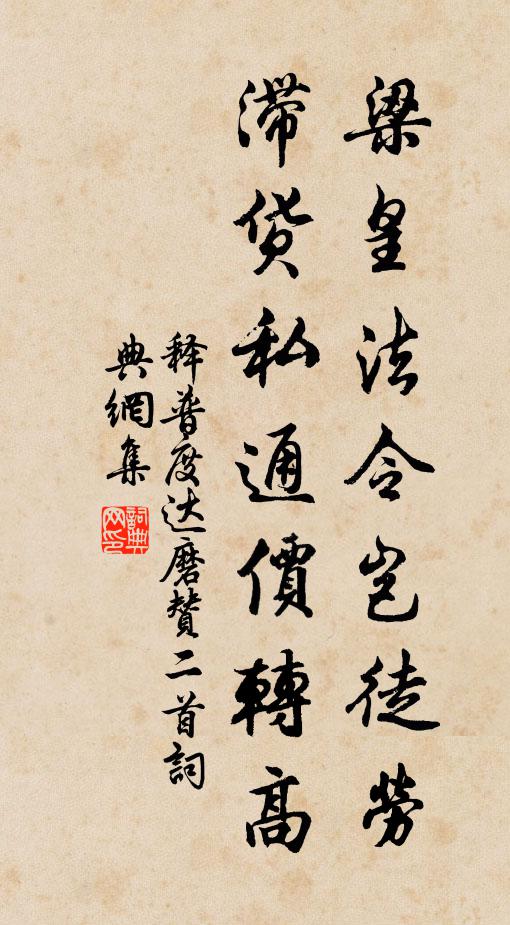 梁皇法令岂徒劳
滞货私通價轉高
释普度达磨赞二首詞
典網集
詞典网印